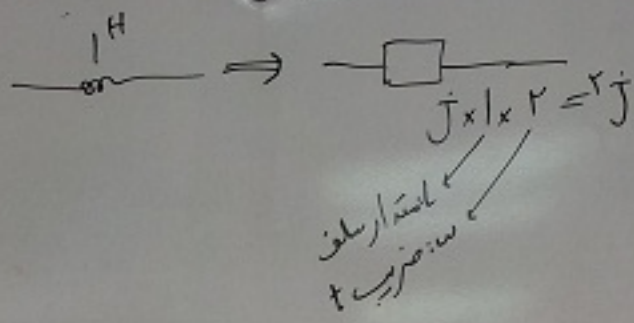 1H
j × 1 × ۲ = ۲j
مقدار سلف
w: ضریب t